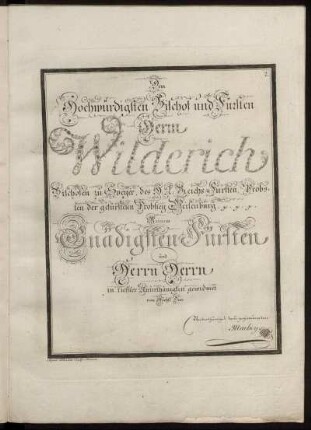 2.
Dem
Hochwürdigsten Bischof und Fürsten
Herrn
Wilderich
Bischofen zu Speyer, des H. R. Reichs Fürsten, Probs-
ten der gefürsteten Probstey Weisenburg
Meinem
Gnädigsten Fürsten
und
Herrn Herrn
in tiefster Unterthänigkeit gewidmet